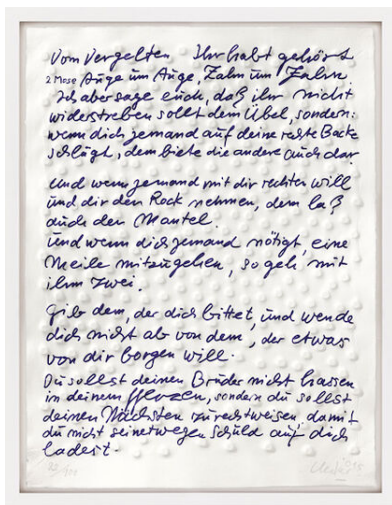 Vom Vergelten Ihr habt gehört
2 Mose Auge um Auge, Zahn um Zahn.
Ich aber sage euch, daß ihr nicht
widerstreben sollt dem Übel, sondern:
wenn dich jemand auf deine rechte Backe
schlägt, dem biete die andere auch dar.
und wenn jemand mit dir rechten will
und dir den Rock nehmen, dem laß
auch den Mantel.
und wenn dich jemand nötigt, eine
Meile mitzugehen, so geh mit
ihm zwei.
Gib dem, der dich bittet, und wende
dich nicht ab von dem, der etwas
von dir borgen will.
Du sollst deinen Bruder nicht hassen
in deinem Herzen, sondern du sollst
deinen Nächsten zurechtweisen damit
du nicht seinetwegen Schuld auf dich
ladest.